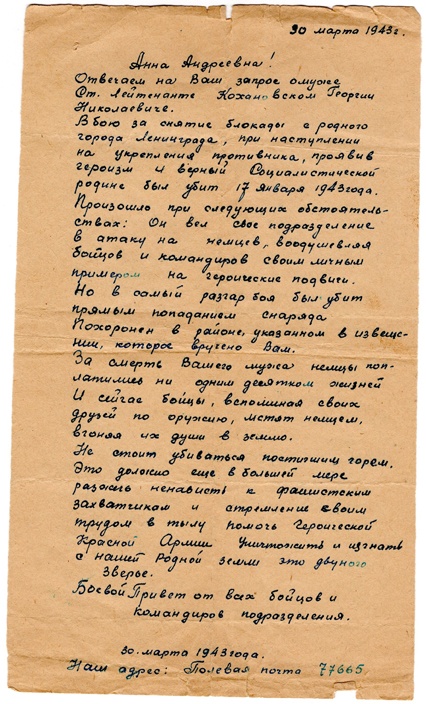 30 марта 1943г.
Анна Андреевна!
Отвечаем на Ваш запрос о муже
Ст. Лейтенанте Кохановском Георгии
Николаевиче.
В бою за снятие блокады с родного
города Ленинграда, при наступлении
на укрепления противника, проявив
героизм и верный Социалистической
родине был убит 17 Января 1943 года.
Произошло при следующих обстоятель-
ствах: Он вел свое подразделение
в атаку на немцев, воодушевляя
бойцов и командиров своим личным
примером на героические подвиги.
Но в самый разгар боя был убит
прямым попаданием снаряда
Похоронен в районе, указанном в извеще-
нии, которое вручено Вам.
За смерть Вашего мужа немцы поп-
латились не одним десятком жизней
И сейчас бойцы, вспоминая своих
друзей по оружию, мстят немцам,
вгоняя их души в землю.
Не стоит убиваться постигшим горем.
Это должно еще в большей мере
разжечь ненависть к фашистским
захватчикам и стремление своим
трудом в тылу помочь Героической
Красной Армии Уничтожить и изгнать
с нашей Родной земли это двуногое
Зверье.
Боевой Привет от всех бойцов и
командиров подразделения.
30. марта 1943 года.
Наш адрес: Полевая почта 77665